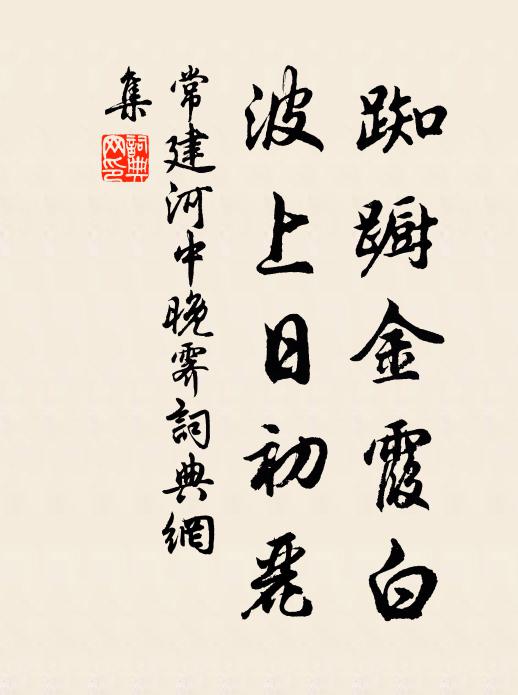 踟蹰金霞白
波上日初麗
常建河中晚霽詞典網
集
詞典
网印